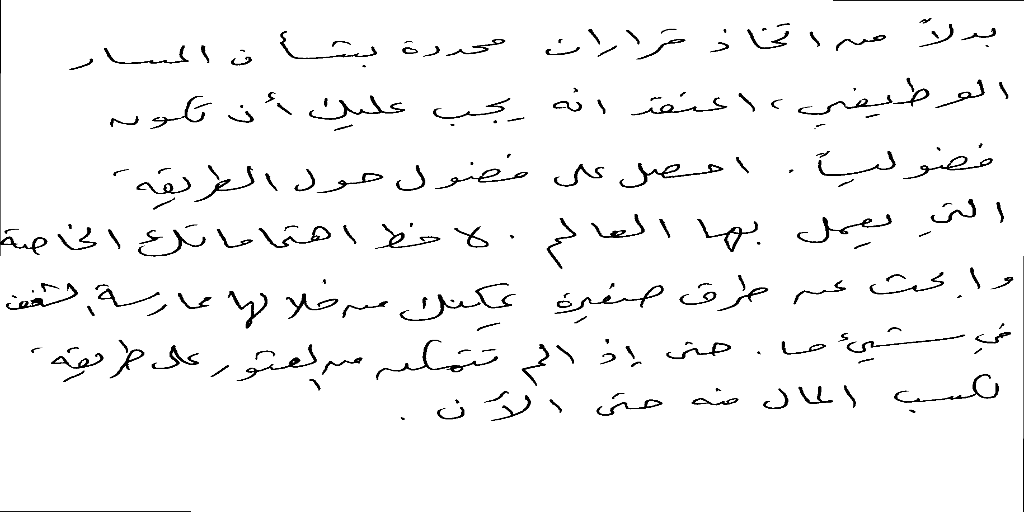 بدلاً من اتخاذ قرارات محددة بشأن المسار
الوظيفي، اعتقد انه يجب عليك أن تكون
فضولياً. احصل على فضول حول الطريقة
التي يعمل بها العالم. لاحظ اهتماماتك الخاصة
وابحث عن طرق صغيرة يمكنك من خلالها ممارسة الشغف
في شيء ما. حتى إذ الم تتمكن من العثور على طريقة
لكسب المال منه حتى الآن.